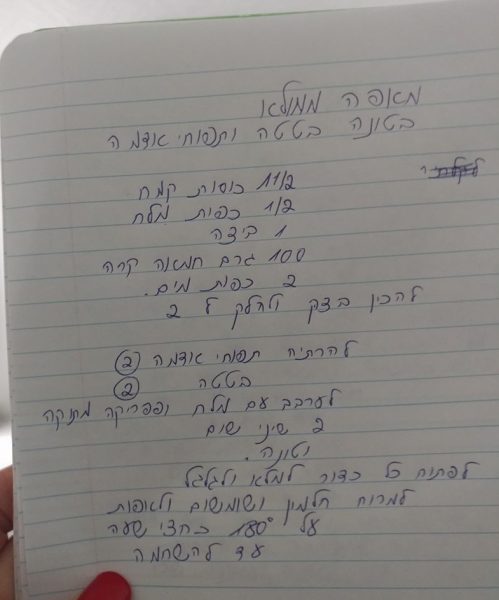 מאפה ממולא
בטונה בטטה ותפוחי אדמה
1 1/2 כוסות קמח
1/2 כפות מלח
1 ביצה
100 גרם חמאה קרה
2 כפות מים.
להכין בצק ולחלק ל 2
להרתיח תפוחי אדמה (2)
בטטה (2)
לערבב עם מלח ופפריקה מתוקה
2 שיני שום
וטונה.
לפתוח כל כדור למלא ולגלגל
למרוח חלמון ושומשום ולאפות
על 180° כחצי שעה
עד להשחמה